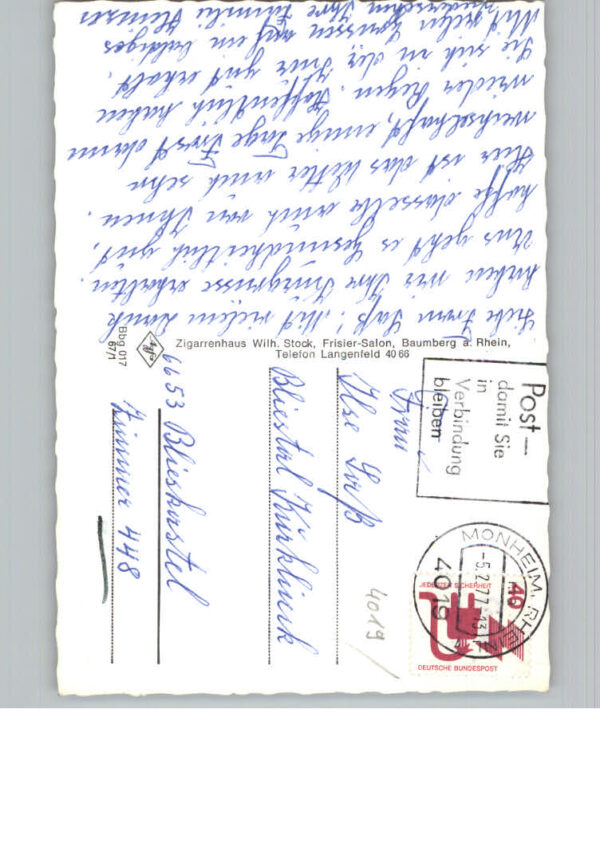 Liebe Frau Saß! Mit vielen Dank
haben wir Ihre Kurgrüsse erhalten.
Uns geht es Gesundheitlich gut,
hoffe dasselbe auch von Ihnen.
Hier ist das Wetter auch sehr
wechselhaft, einige Tage Frost dann
wieder Regen. Hoffentlich haben
Sie sich in der Kur gut erholt.
Mit vielen Grüssen auf ein baldiges
Wiedersehen Ihre Familie
Zigarrenhaus Wilh. Stock, Frisier-Salon, Baumberg a. Rhein,
Telefon Langenfeld 40 66
Bbg 017
67/1
Agfa
Post—
damit Sie
in
Verbindung
bleiben
MONHEIM, RHEINL
-5.2.77-13
4019
JEDERZEIT SICHERHEIT
40
DEUTSCHE BUNDESPOST
Frau
Ilse Saß
Bliestal Kurklinik
6653 Blieskastel
Zimmer 448
4019/